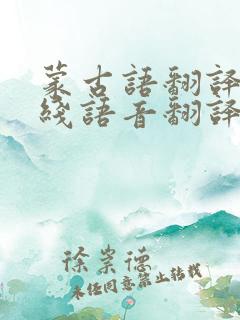 蒙古語翻譯
綫語音翻譯
徐崇德
未經同意禁止轉載